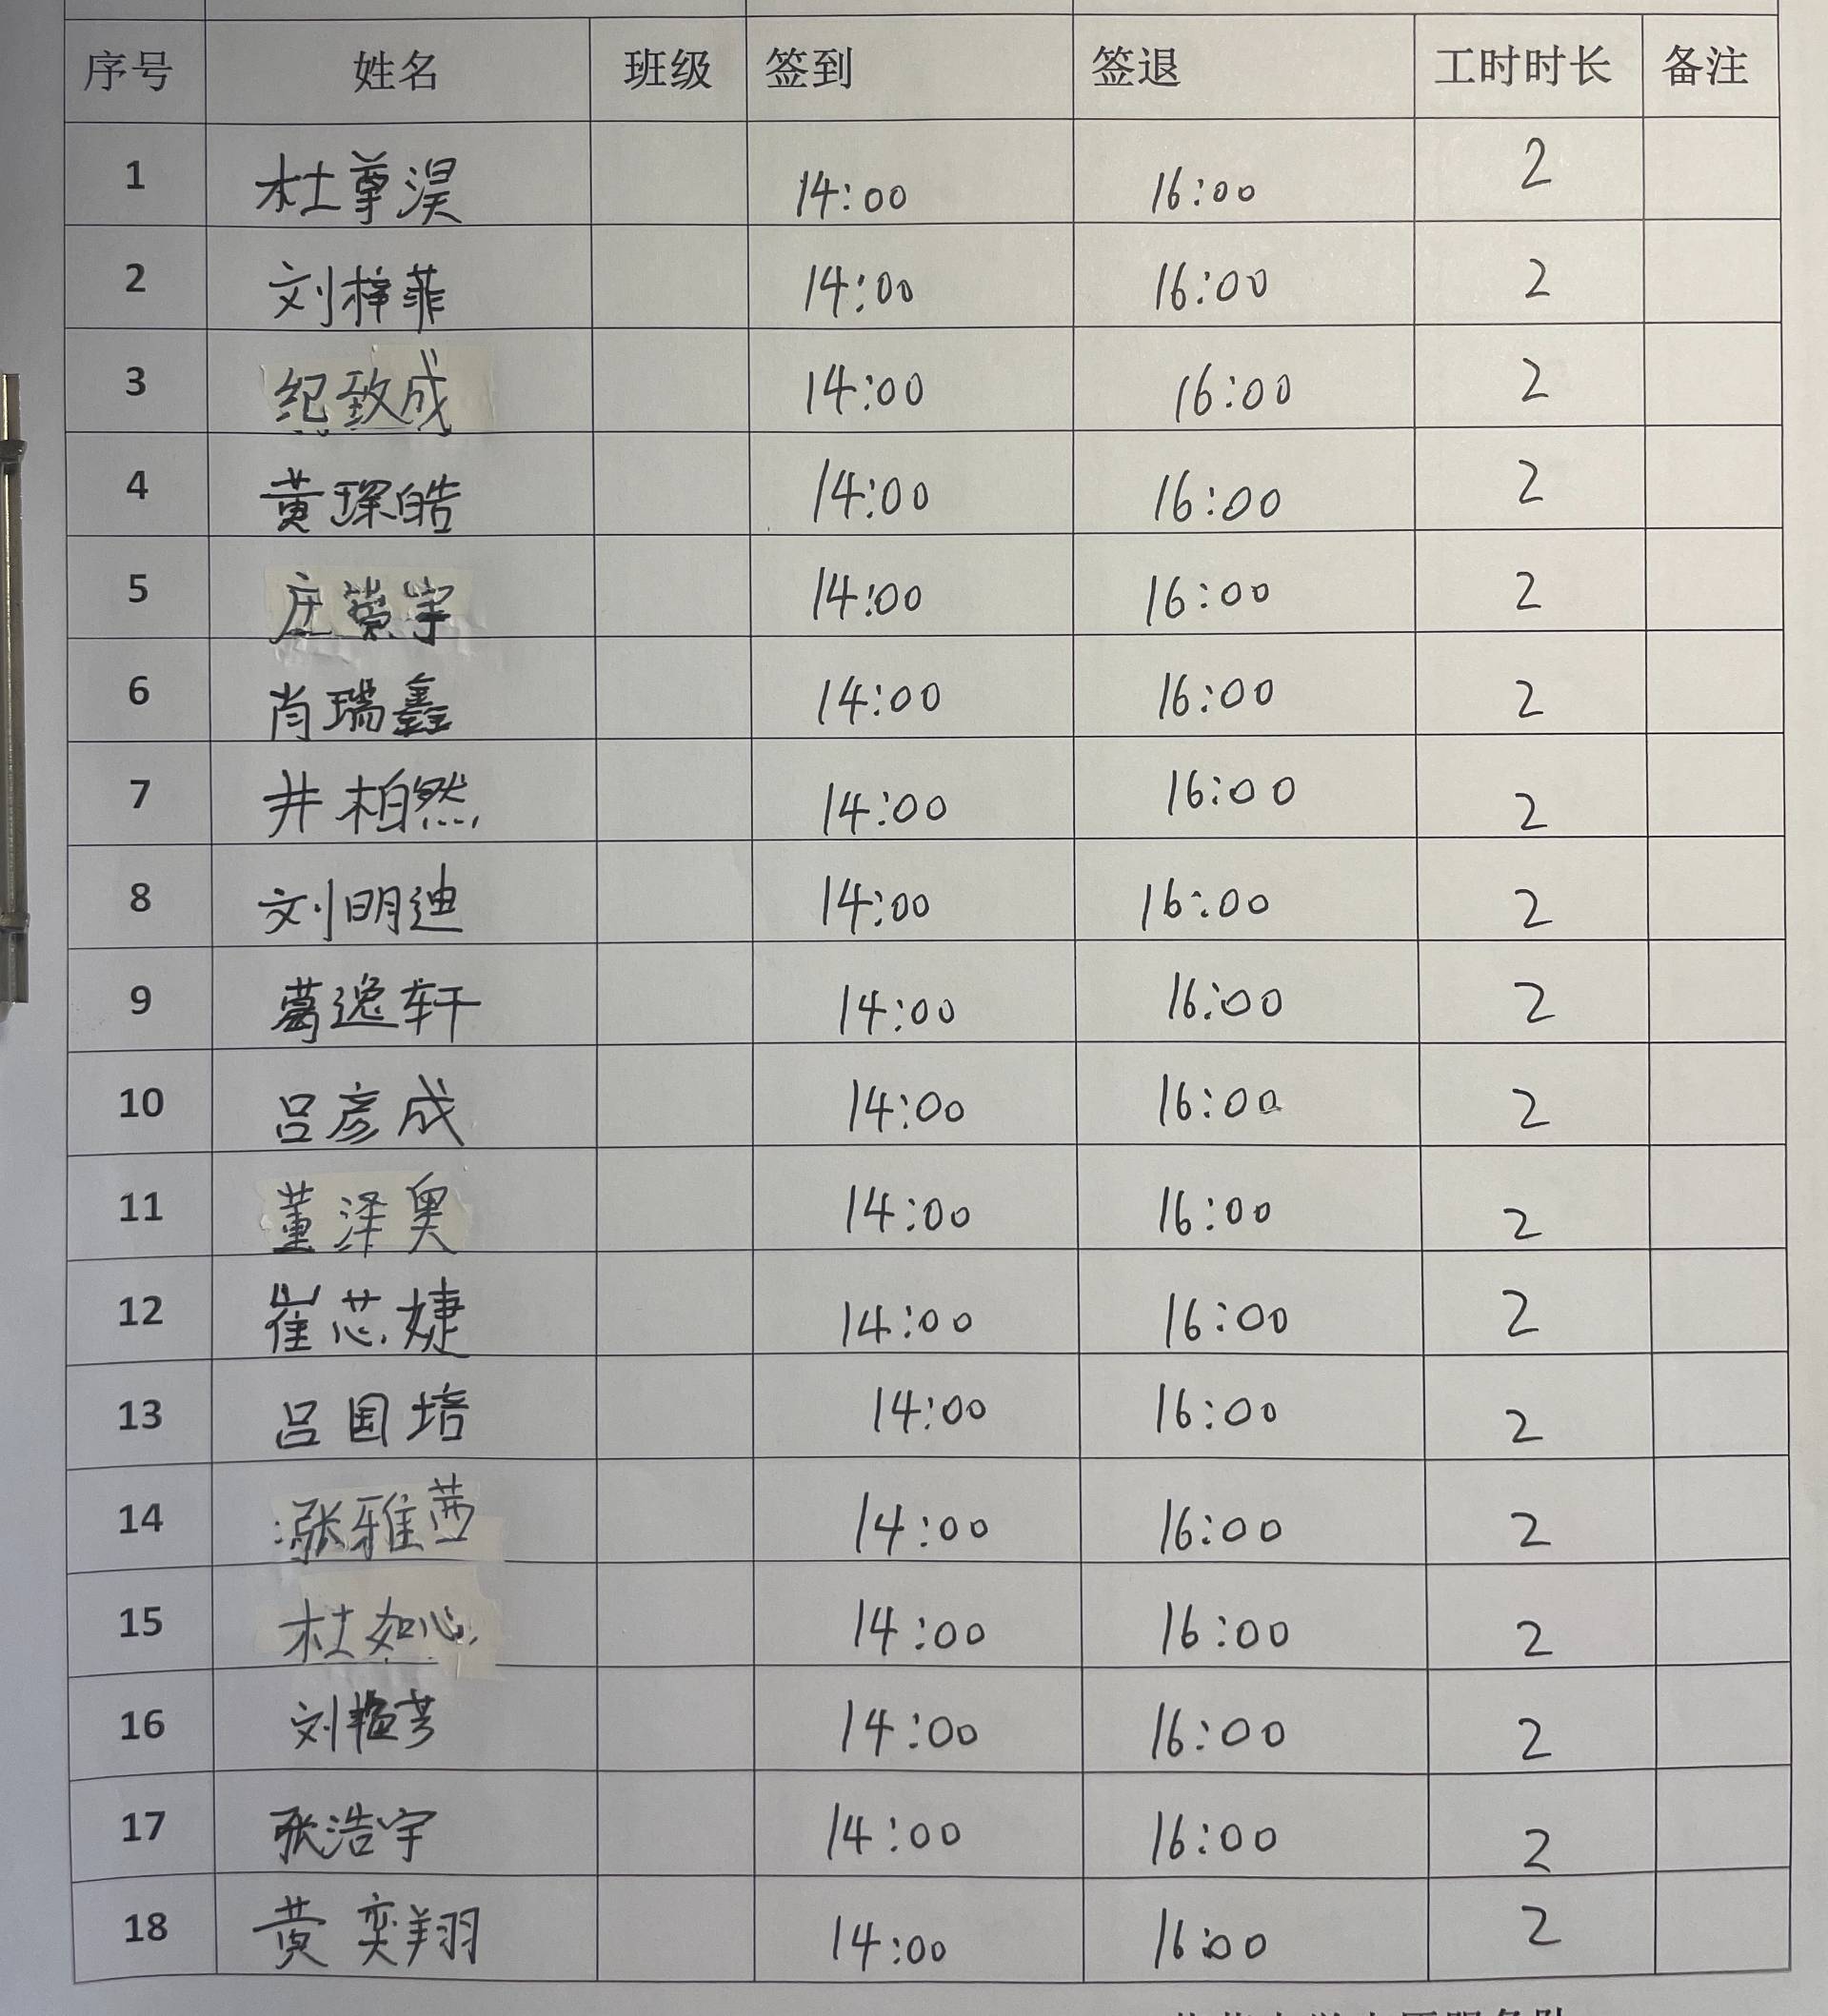 序号 姓名 班级 签到 签退 工时时长 备注
1 杜尊淏 14:00 16:00 2
2 刘梓菲 14:00 16:00 2
3 纪致成 14:00 16:00 2
4 黄琛皓 14:00 16:00 2
5 庄 宇 14:00 16:00 2
6 肖瑞鑫 14:00 16:00 2
7 井柏然 14:00 16:00 2
8 刘明迪 14:00 16:00 2
9 葛逸轩 14:00 16:00 2
10 吕彦成 14:00 16:00 2
11 董泽奥 14:00 16:00 2
12 崔芯婕 14:00 16:00 2
13 吕国培 14:00 16:00 2
14 张雅茜 14:00 16:00 2
15 杜如心 14:00 16:00 2
16 刘艳芳 14:00 16:00 2
17 张浩宇 14:00 16:00 2
18 黄奕翔 14:00 16:00 2